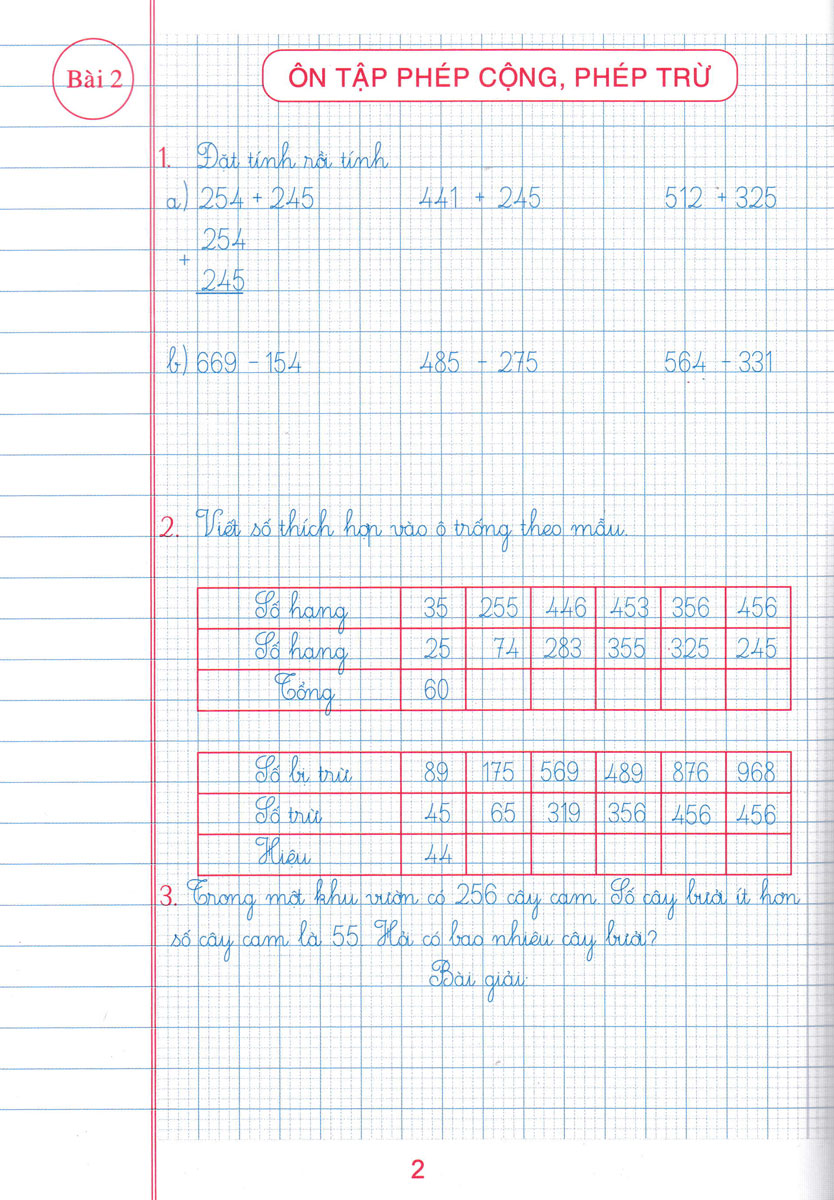 Bài 2
ÔN TẬP PHÉP CỘNG, PHÉP TRỪ
1. Đặt tính rồi tính
a) 254 + 245 441 + 245 512 + 325
254
+
245
b) 669 - 154 485 - 275 564 - 331
2. Viết số thích hợp vào ô trống theo mẫu.
Số hạng 35 255 446 453 356 456
Số hạng 25 74 283 355 325 245
Tổng 60
Số bị trừ 89 175 569 489 876 968
Số trừ 45 65 319 356 456 456
Hiệu 44
3. Trong một khu vườn có 256 cây cam. Số cây bưởi ít hơn
số cây cam là 55. Hỏi có bao nhiêu cây bưởi?
Bài giải:
2